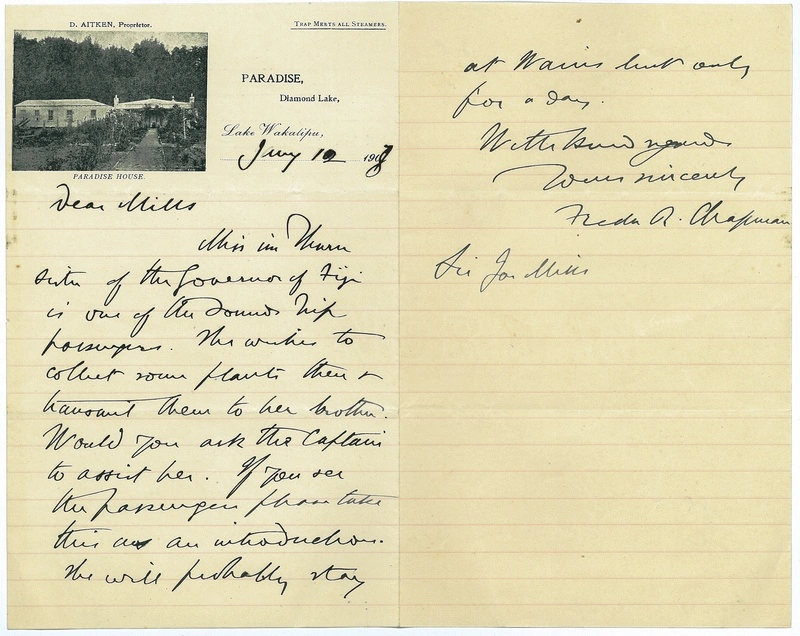 D. AITKEN, Proprietor.
TRAP MEETS ALL STEAMERS.
PARADISE,
Diamond Lake,
Lake Wakatipu,
Jany 12 1908
PARADISE HOUSE.
Dear Mills
Miss im Thurn
sister of the Governor of Fiji
is one of the Sounds trip
passengers. She wishes to
collect some plants there &
transmit them to her brother.
Would you ask the Captain
to assist her. If you see
the passengers please take
this as an introduction.
She will probably stay
at Wains but only
for a day.
With kind regards
Yours sincerely
Fredk R. Chapman
Sir Jas Mills